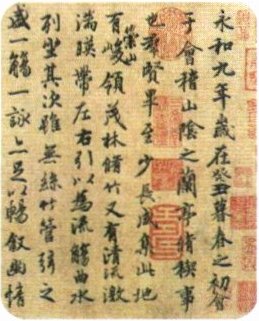 永和九年歲在癸丑暮春之初會
于會稽山陰之蘭亭脩禊事
也羣賢畢至少長咸集此地
有崇山峻領茂林脩竹又有清流激
湍暎帶左右引以為流觴曲水
列坐其次雖無絲竹管弦之
盛一觴一詠亦足以暢敘幽情